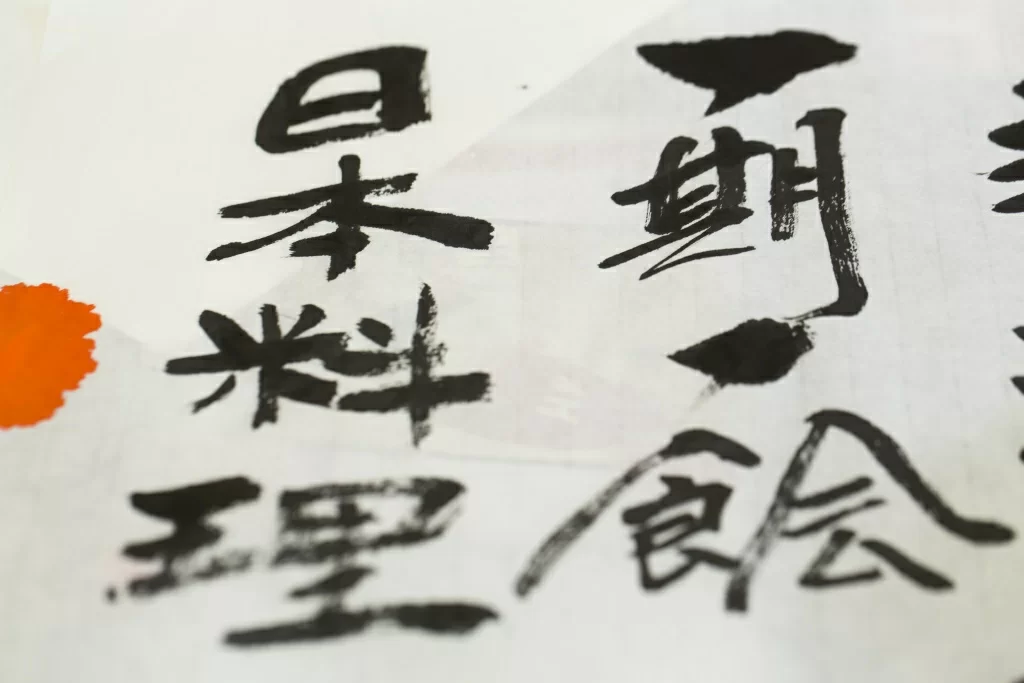 一期一食会
日本料理